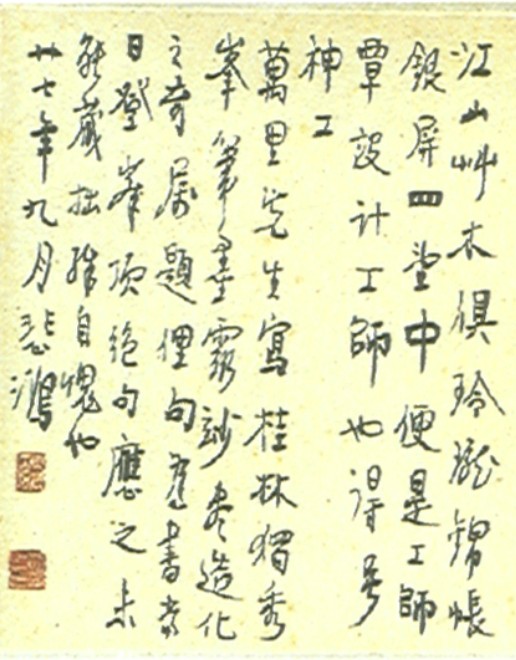 江山艸木俱玲瓏錦帳
銀屏四望中便是工師
覃設計工師也得号
神工
萬里先生寫桂林獨秀
峯筆墨靈妙盡造化
之奇屬題俚句舊書當
日登峯頂絕句應之未
能藏拙殊自愧也
廿七年九月悲鴻